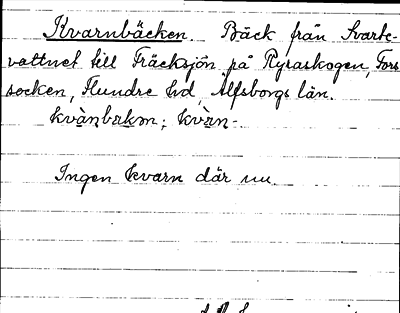 Kvarnbäcken. Bäck från Svarte-
vattnet till Träcksjön på Ryraskogen, Fors
socken, Flundre hd, Älfsborgs län.
kvànbækən; kvàn-
Ingen kvarn där nu.